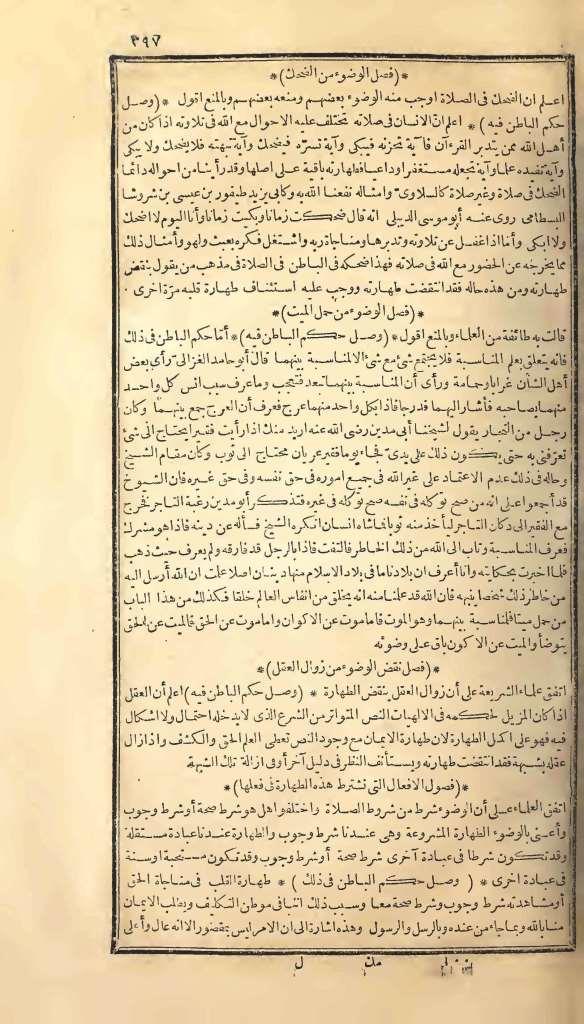 ٣٩٧
*(فصل الوضوء من الضحك)*
اعلم ان الضحك فى الصلاة اوجب منه الوضوء بعضهم ومنعه بعضهم وبالمنع اقول *(وصل
حكم الباطن فيه)* اعلم ان الانسان فى صلاته تختلف عليه الاحوال مع الله فى تلاوته اذا كان من
أهل الله ممن يتدبر القرءآن فآية تحزنه فيبكى وآية تسرّه فيضحك وآية تبهته فلا يضحك ولا يبكى
وآية تفيده علما وآية تجعله مستغفرا وداعيا فطهارته باقية على اصلها وقد رأينا من احواله دائما
الضحك فى صلاة وغير صلاة كالسلاوى وامثاله نفعنا الله به وكابى يزيد طيفور بن عيسى بن شروشا
البسطامى روى عنه أبو موسى الديبلى انه قال ضحكت زمانا وبكيت زمانا وأنا اليوم لا اضحك
ولا ابكى وأما اذا غفل عن تلاوته وتدبرها ومناجاة ربه واشتغل فكره بعبث ولهو وأمثال ذلك
مما يخرجه عن الحضور مع الله فى صلاته فهذا ضحكه فى الباطن فى الصلاة فى مذهب من يقول بنقض
طهارته ومن هذه حاله فقد انتقضت طهارته ووجب عليه استئناف طهارة قلبه مرّة اخرى
*(فصل الوضوء من حمل الميت)*
قالت به طائفة من العلماء وبالمنع اقول *(وصل حكم الباطن فيه)* أمّا حكم الباطن فى ذلك
فانه يتعلق بعلم المناسبة فلا يجتمع شئ مع شئ الا لمناسبة بينهما قال أبو حامد الغزالى رأى بعض
أهل الشأن غرابا وحمامة ورأى أن المناسبة بينهما تبعد فتعجب وما عرف سبب انس كل واحد
منهما بصاحبه فأشار اليهما فدرجا فاذا بكل واحد منهما عرج فعرف أن العرج جمع بينهما وكان
رجل من التجار يقول لشيخنا أبى مدين رضى الله عنه اريد منك اذا رأيت فقيرا يحتاج الى شئ
تعرّفنى به حتى يكون ذلك على يدىّ فجاء يوما فقير عريان محتاج الى ثوب وكان مقام الشيخ
وحاله فى ذلك عدم الاعتماد على غير الله فى جميع اموره فى حق نفسه وفى حق غيره فان الشيوخ
قد أجمعوا على انه من صح توكله فى نفسه صح توكله فى غيره فتذكر أبو مدين رغبة التاجر فخرج
مع الفقير الى دكان التاجر ليأخذ منه ثوبا فماشاه انسان انكره الشيخ فسأله عن دينه فاذا هو مشرك
فعرف المناسبة وتاب الى الله من ذلك الخاطر فالتفت فاذا بالرجل قد فارقه ولم يعرف حيث ذهب
فلما اخبرت بحكايته وانا أعرف ان بلادنا ما فى بلاد الاسلام منها دينان اصلا علمت ان الله أرسل اليه
من خاطر ذلك شخصا ينبهه فان الله قد علمنا منه انه يخلق من انفاس العالم خلقا فكذلك من هذا الباب
من حمل ميتا فلمناسبة بينهما وهو الموت فاما موت عن الاكوان واما موت عن الحق فالميت عن الحق
يتوضأ والميت عن الاكوان باق على وضوئه
*(فصل نقض الوضوء من زوال العقل)*
اتفق علماء الشريعة على أن زوال العقل ينقض الطهارة *(وصل حكم الباطن فيه) اعلم أن العقل
اذا كان المزيل لحكمه فى الالهيات النص المتواتر من الشرع الذى لا يدخله احتمال ولا اشكال
فيه فهو على اكمل الطهارة لان طهارة الايمان مع وجود النص تعطى العلم الحق والكشف واذا زال
عقله بشبهة فقد انتقضت طهارته ويستأنف النظر فى دليل آخر أو فى ازالة تلك الشبهة
*(فصول الافعال التى تشترط هذه الطهارة فى فعلها)*
اتفق العلماء على أن الوضوء شرط من شروط الصلاة واختلفوا هل هو شرط صحة أو شرط وجوب
وأعنى بالوضوء الطهارة المشروعة وهى عندنا شرط وجوب والطهارة عندنا عبادة مستقلة
وقد تكون شرطا فى عبادة اخرى شرط صحة أو شرط وجوب وقد تكون مستحبة او سنة
فى عبادة اخرى *( وصل حكم الباطن فى ذلك )* طهارة القلب فى مناجاة الحق
أو مشاهدته شرط وجوب وشرط صحة معا وسبب ذلك اننا فى موطن التكليف ويطلب الايمان
منا بالله وبما جاء من عنده وبالرسل والرسول وهذه اشارة الى ان الامر ليس بمقصور الا انه عال وأعلى
ل